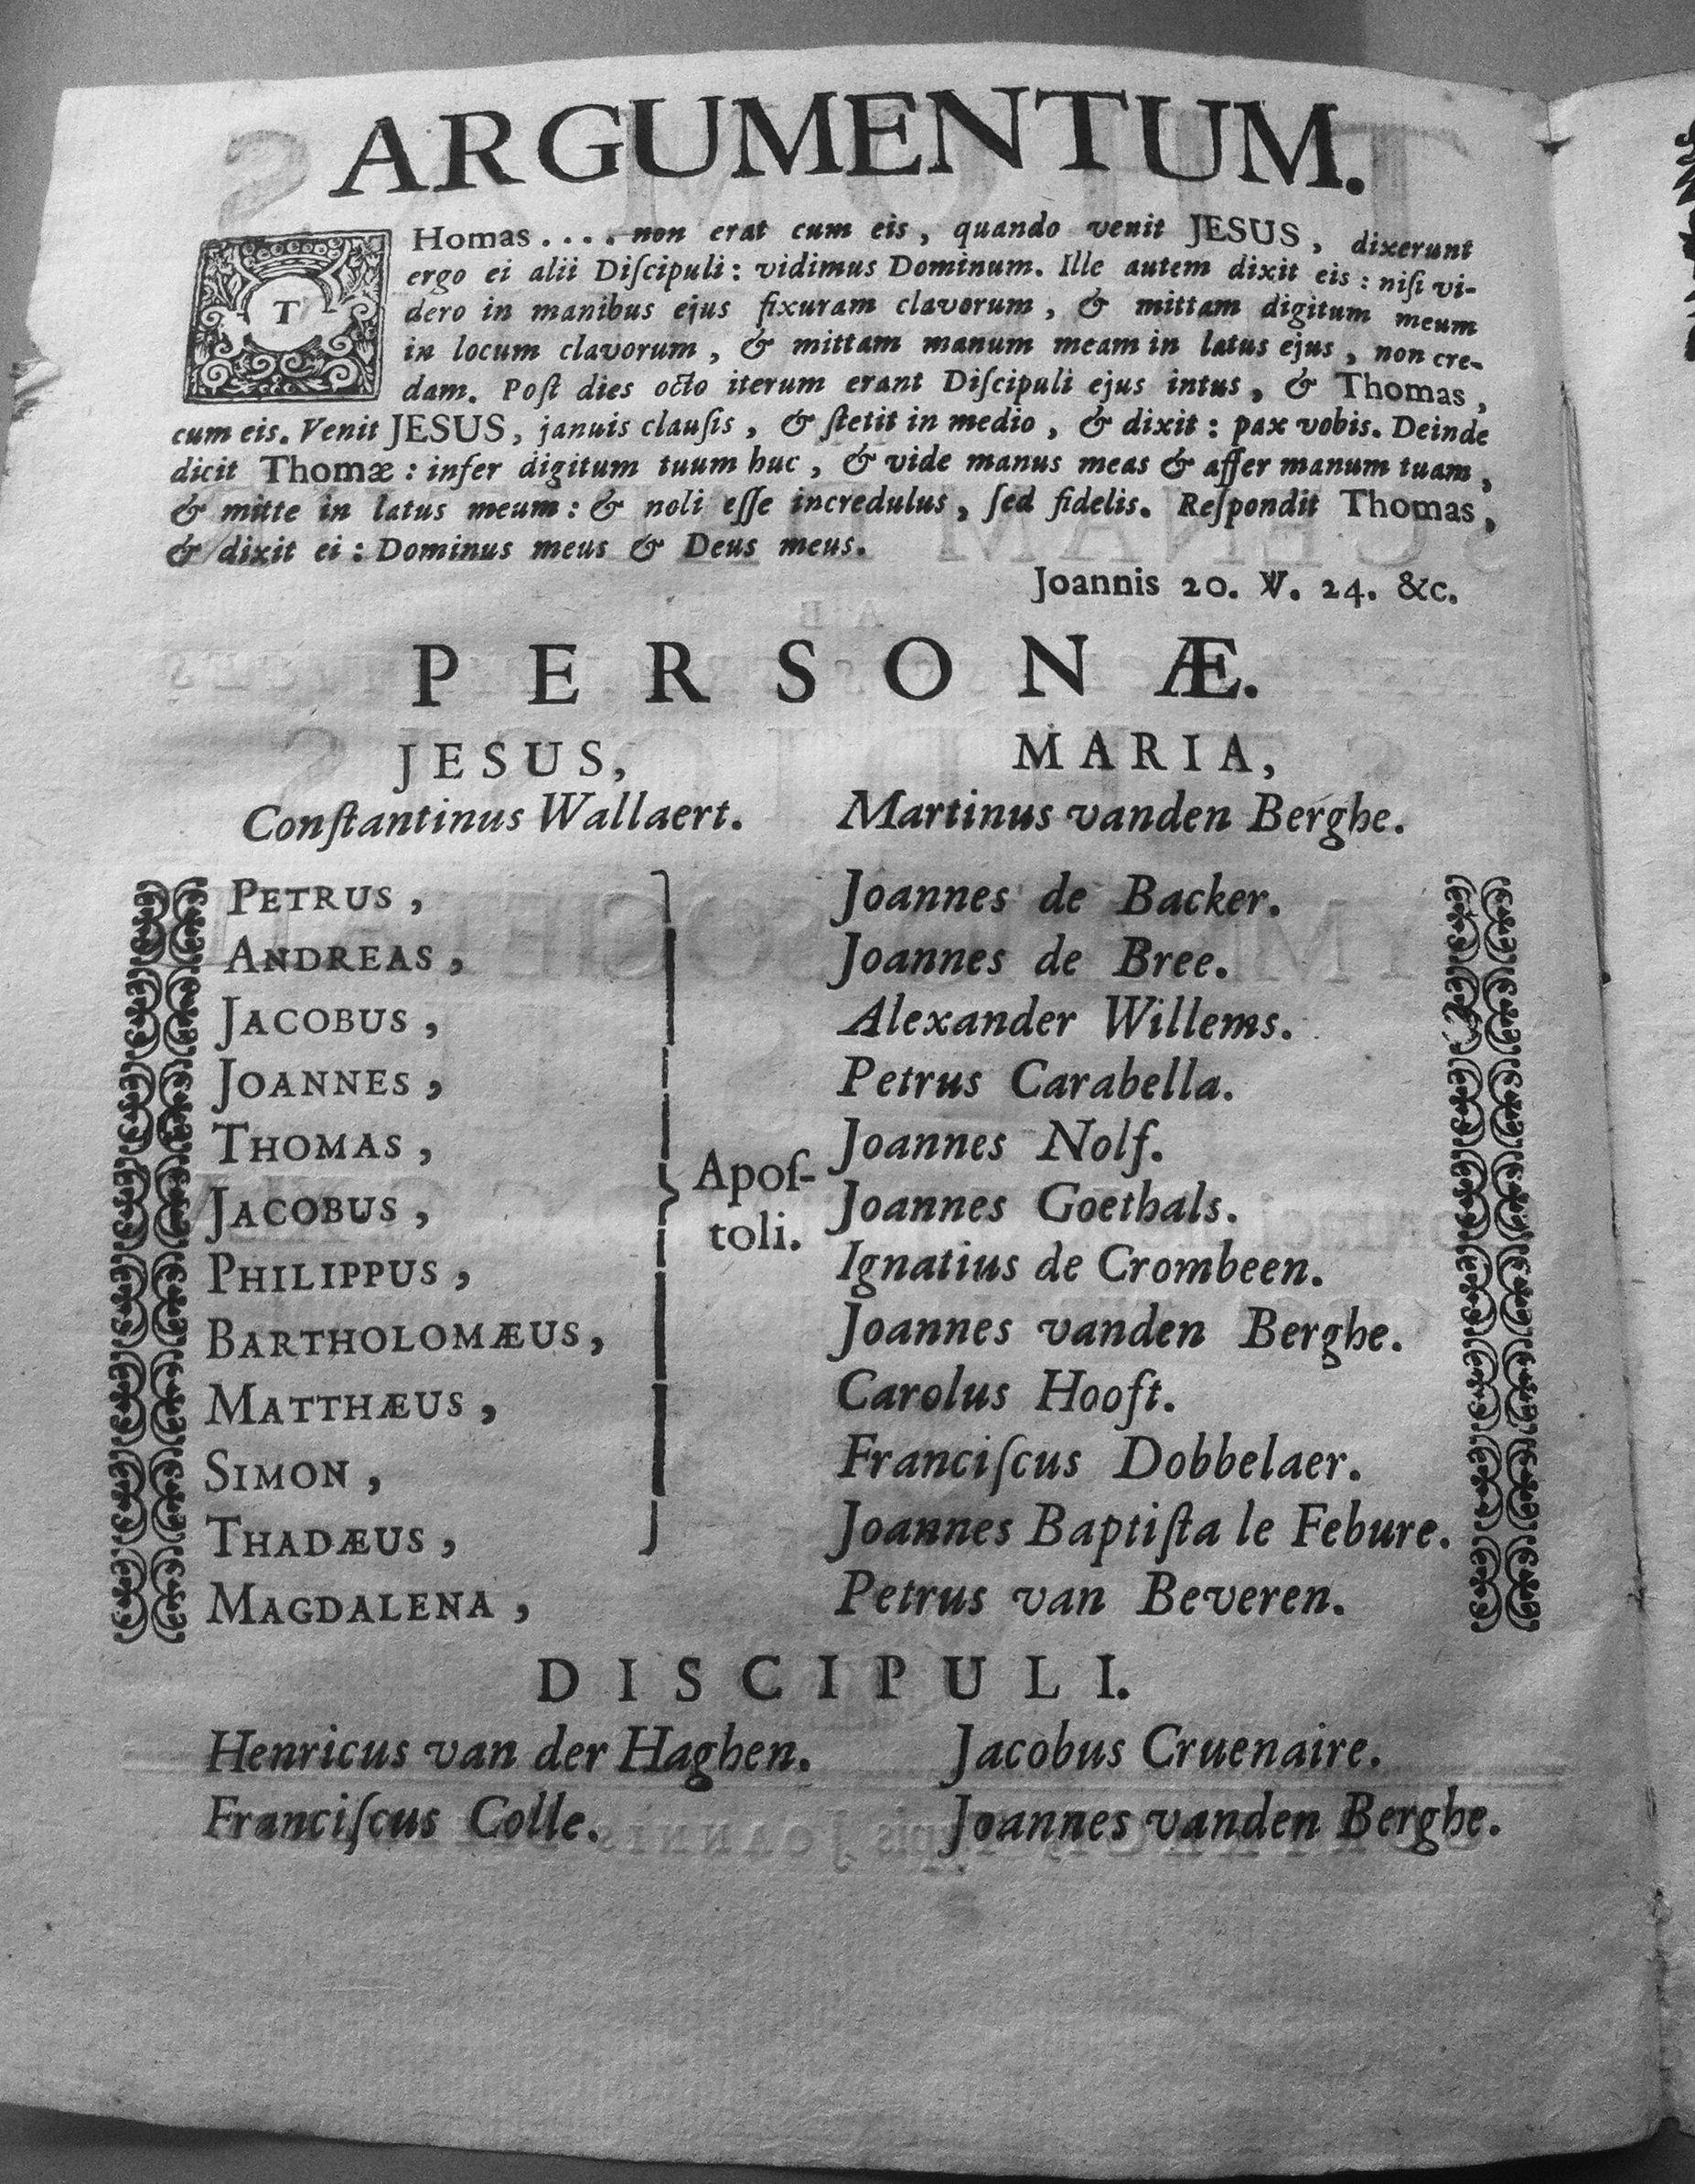 ARGUMENTUM.
THomas . . . . non erat cum eis, quando venit JESUS, dixerunt
ergo ei alii Diſcipuli: vidimus Dominum. Ille autem dixit eis: niſi vi-
dero in manibus ejus fixuram clavorum, & mittam digitum meum
in locum clavorum, & mittam manum meam in latus ejus, non cre-
dam. Poſt dies octo iterum erant Diſcipuli ejus intus, & Thomas,
cum eis. Venit JESUS, januis clauſis, & ſtetit in medio, & dixit: pax vobis. Deinde
dicit Thomæ: infer digitum tuum huc, & vide manus meas & affer manum tuam,
& mitte in latus meum: & noli eſſe incredulus, ſed fidelis. Reſpondit Thomas,
& dixit ei: Dominus meus & Deus meus.
Joannis 20. ℣. 24. &c.
PERSONÆ.
JESUS, MARIA,
Conſtantinus Wallaert. Martinus vanden Berghe.
PETRUS, Joannes de Backer.
ANDREAS, Joannes de Bree.
JACOBUS, Alexander Willems.
JOANNES, Petrus Carabella.
THOMAS, Joannes Nolf.
Apoſ-
JACOBUS, Joannes Goethals.
toli.
PHILIPPUS, Ignatius de Crombeen.
BARTHOLOMÆUS, Joannes vanden Berghe.
MATTHÆUS, Carolus Hooft.
SIMON, Franciſcus Dobbelaer.
THADÆUS, Joannes Baptiſta le Febure.
MAGDALENA, Petrus van Beveren.
DISCIPULI.
Henricus van der Haghen. Jacobus Cruenaire.
Franciſcus Colle. Joannes vanden Berghe.